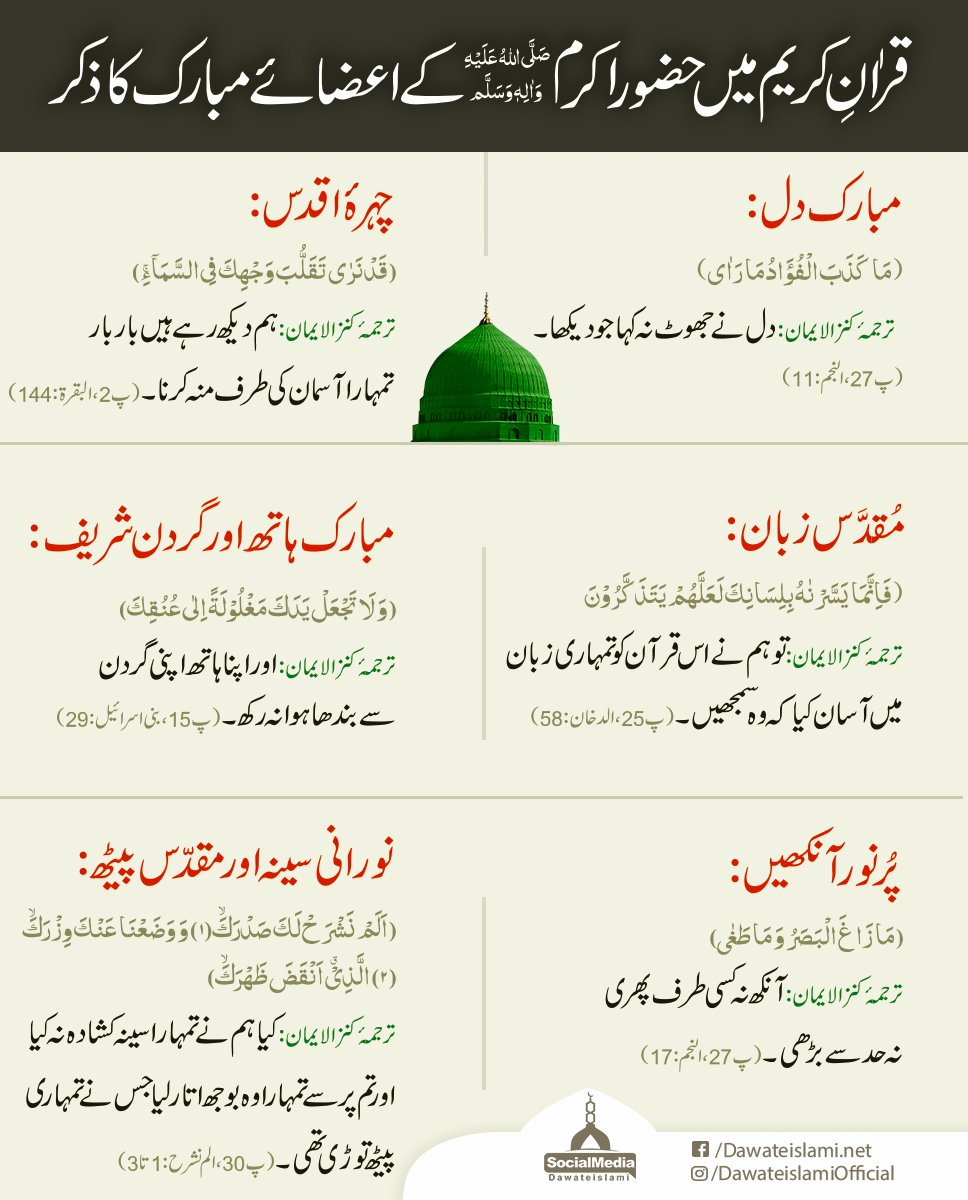 قراٰنِ کریم میں حضور اکرم صَلَّی اللہُ عَلَیْہِ وَاٰلِہٖ وَسَلَّم کے اعضائے مبارک کا ذکر
مبارک دل:
(مَا كَذَبَ الْفُؤَادُ مَا رَاٰى)
ترجمۂ کنز الایمان: دل نے جھوٹ نہ کہا جو دیکھا۔
(پ27، النجم:11)
چہرۂ اقدس:
(قَدْ نَرٰى تَقَلُّبَ وَجْهِكَ فِی السَّمَآءِۚ)
ترجمۂ کنز الایمان: ہم دیکھ رہے ہیں بار بار
تمہارا آسمان کی طرف منہ کرنا۔ (پ2، البقرۃ:144)
مُقدَّس زبان:
(فَاِنَّمَا یَسَّرْنٰهُ بِلِسَانِكَ لَعَلَّهُمْ یَتَذَكَّرُوْنَ
ترجمۂ کنز الایمان: تو ہم نے اس قرآن کو تمہاری زبان
میں آسان کیا کہ وہ سمجھیں۔ (پ25، الدخان:58)
مبارک ہاتھ اور گردن شریف:
(وَ لَا تَجْعَلْ یَدَكَ مَغْلُوْلَةً اِلٰى عُنُقِكَ)
ترجمۂ کنز الایمان: اور اپنا ہاتھ اپنی گردن
سے بندھا ہوا نہ رکھ۔ (پ15، بنی اسرائیل:29)
پُرنور آنکھیں:
(مَا زَاغَ الْبَصَرُ وَ مَا طَغٰى)
ترجمۂ کنز الایمان: آنکھ نہ کسی طرف پھری
نہ حد سے بڑھی۔ (پ27، النجم:17)
نورانی سینہ اور مقدّس پیٹھ:
(اَلَمْ نَشْرَحْ لَكَ صَدْرَكَۙ(۱) وَ وَضَعْنَا عَنْكَ وِزْرَكَۙ
(۲) الَّذِیْۤ اَنْقَضَ ظَهْرَكَۙ)
ترجمۂ کنز الایمان: کیا ہم نے تمہارا سینہ کشادہ نہ کیا
اور تم پر سے تمہارا وہ بوجھ اتار لیا جس نے تمہاری
پیٹھ توڑی تھی۔ (پ30، الم نشرح:1تا3)
SocialMedia
Dawateislami
/Dawateislami.net
/DawateislamiOfficial